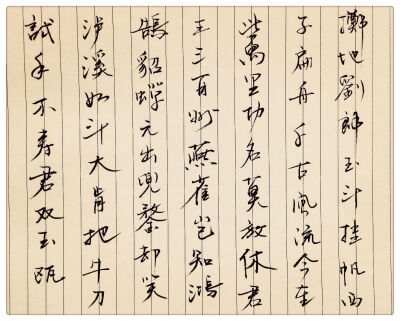 擲地劉郎玉斗挂帆西
子扁舟千古風流今在
此萬里功名莫放休君
王三百州燕雀岂知鴻
鵠貂蟬元出兜鍪却笑
泸溪如斗大肯把牛刀
試手不寿君双玉瓯